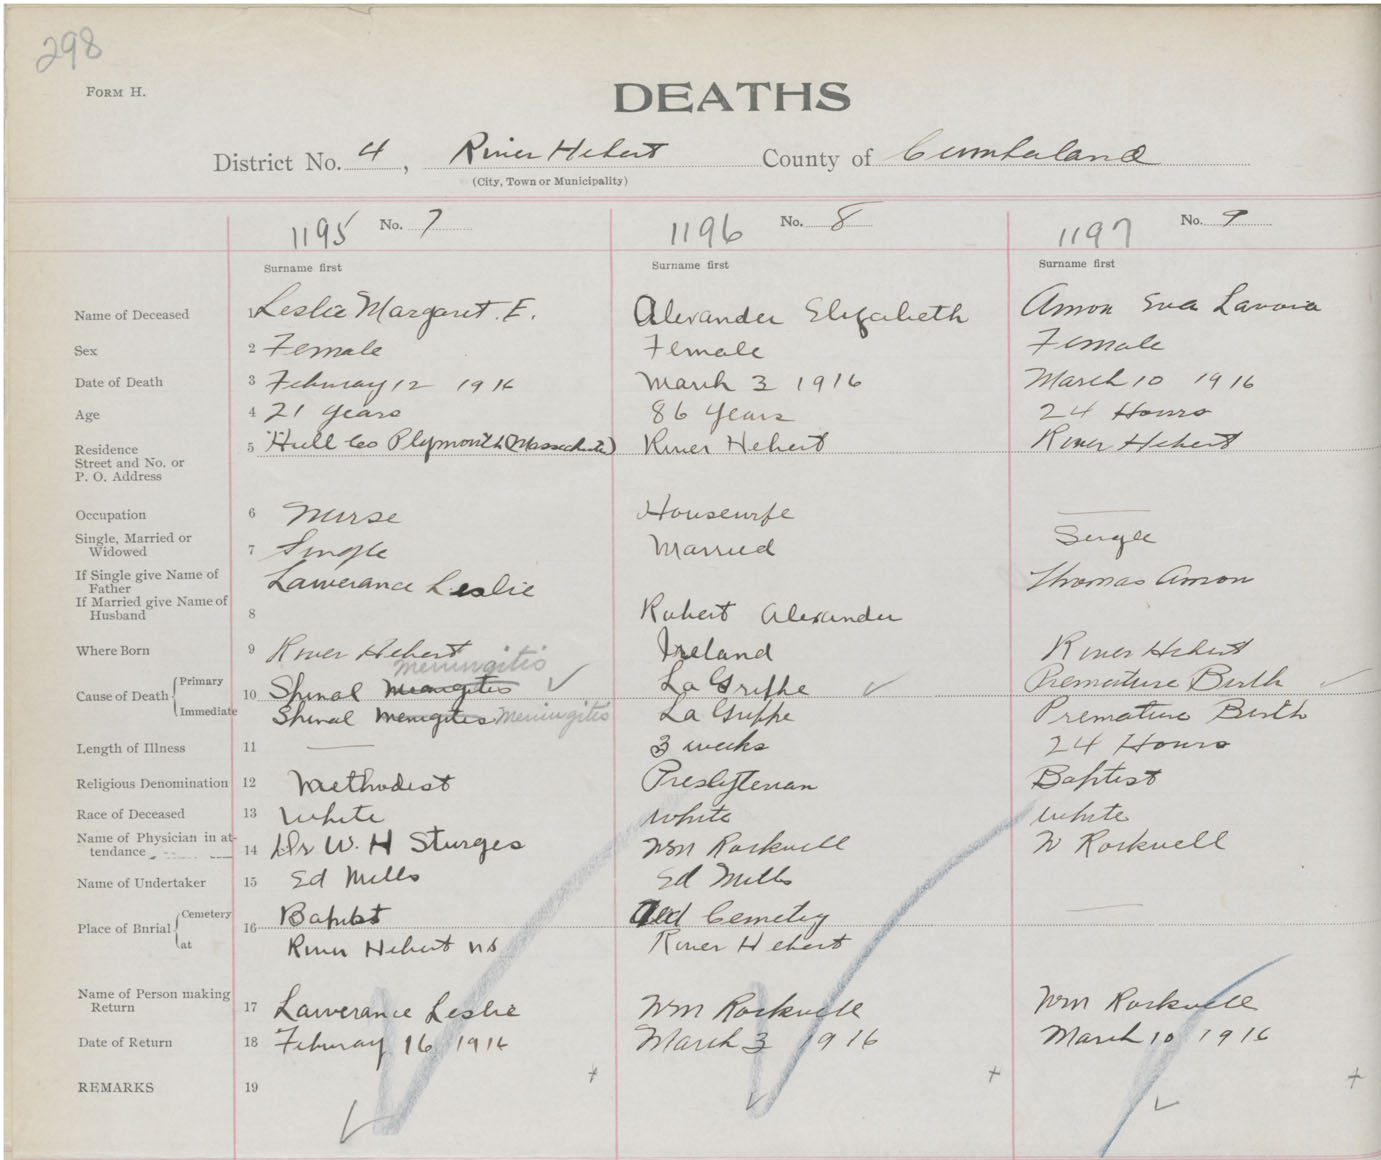 298
FORM H.
DEATHS
District No. 4, River Hebert County of Cumberland
(City, Town or Municipality)
1195 No. 7 1196 No. 8 1197 No. 9
Surname first Surname first Surname first
Name of Deceased 1 Leslie Margaret. E. Alexander Elizabeth Amon Eva Lavora
Sex 2 Female Female Female
Date of Death 3 Februay 12 1916 March 3 1916 March 10 1916
Age 4 21 years 86 years 24 Hours
Residence Street and No. or P. O. Address 5 Hull Co Plymouth (Massachusetts) River Hebert River Hebert
Occupation 6 Nurse Housewife
Single, Married or Widowed 7 Single Married Single
If Single give Name of Father Lawerance Leslie Thomas Amon
If Married give Name of Husband 8 Robert Alexander
Where Born 9 River Hebert Ireland River Hebert
meningitis
Cause of Death Primary 10 Spinal La Grippe Premature Birth
Immediate Spinal Meningitis La Grippe Premature Birth
Length of Illness 11 3 weeks 24 Hours
Religious Denomination 12 Methodist Presbyterian Baptist
Race of Deceased 13 White White White
Name of Physician in attendance 14 Dr W. H Sturges Wm Rockwell W Rockwell
Name of Undertaker 15 Ed Mills Ed Mills
Place of Burial Cemetery 16 Baptist Cemetery
at River Hebert NS River Hebert
Name of Person making Return 17 Lawerance Leslie Wm Rockwell Wm Rockwell
Date of Return 18 Februay 16 1916 March 3 1916 March 10 1916
REMARKS 19